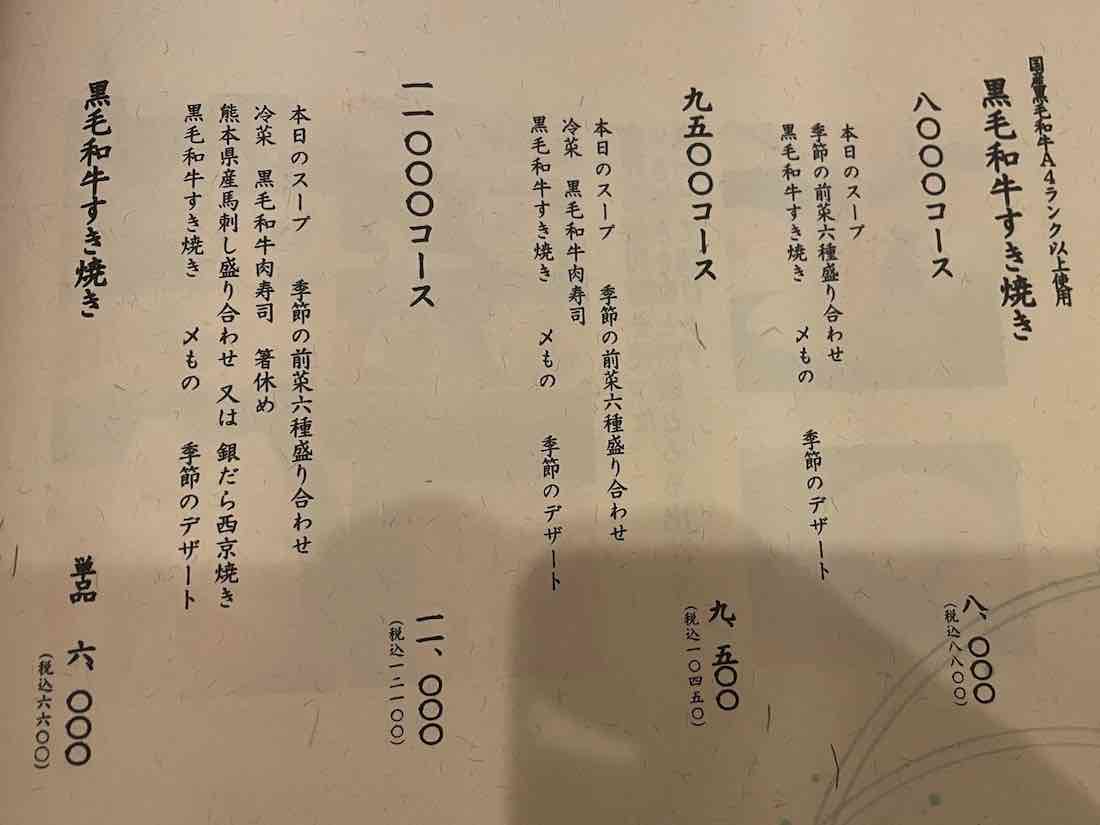 国産黒毛和牛A4ランク以上使用
黒毛和牛すき焼き
八〇〇〇コース
本日のスープ
季節の前菜六種盛り合わせ
黒毛和牛すき焼き　〆もの　季節のデザート
八、〇〇〇
（税込八八〇〇）
九五〇〇コース
本日のスープ　季節の前菜六種盛り合わせ
冷菜　黒毛和牛肉寿司
黒毛和牛すき焼き　〆もの　季節のデザート
九、五〇〇
（税込一〇四五〇）
一一〇〇〇コース
本日のスープ　季節の前菜六種盛り合わせ
冷菜　黒毛和牛肉寿司　箸休め
熊本県産馬刺し盛り合わせ 又は 銀だら西京焼き
黒毛和牛すき焼き　〆もの　季節のデザート
一一、〇〇〇
（税込一二一〇〇）
黒毛和牛すき焼き　単品　六、〇〇〇
（税込六六〇〇）